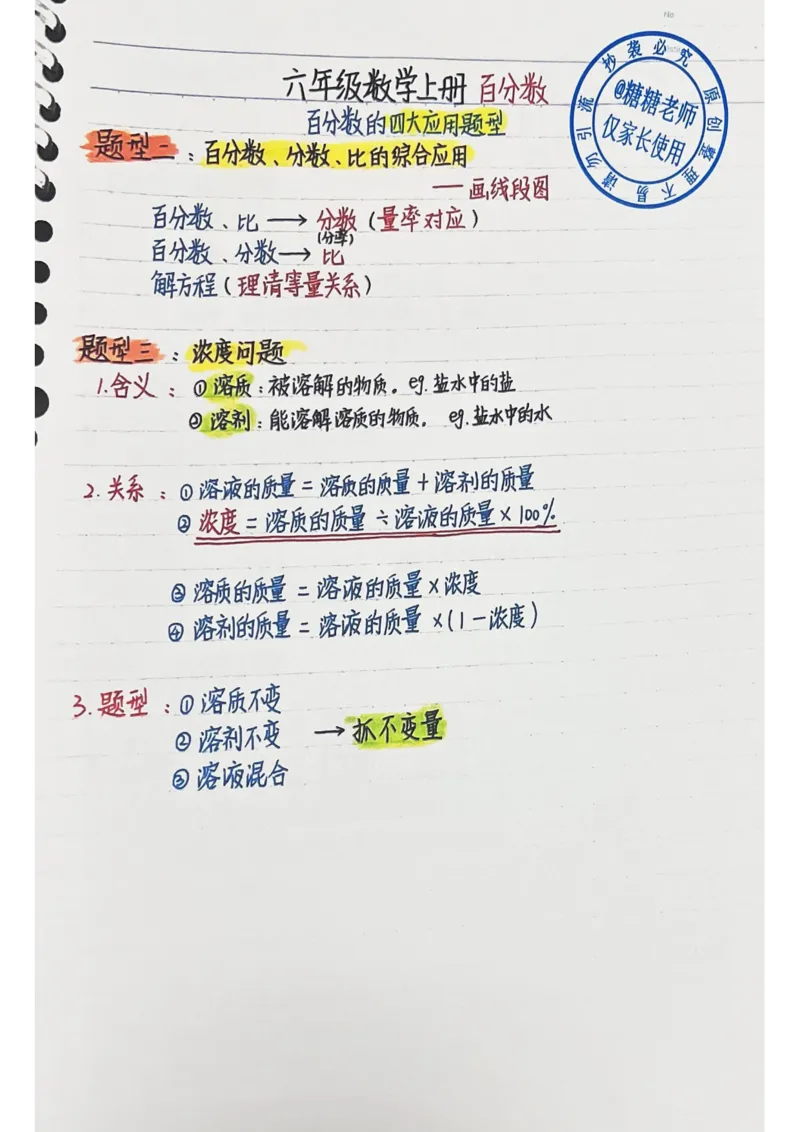 No
六年级数学上册 百分数
百分数的四大应用题型
抄袭必究 原创整理不易 请勿引流
@糖糖老师
仅家长使用
题型二：百分数、分数、比的综合应用
—画线段图
百分数、比→分数（量率对应）
(分率)
百分数、分数→比
解方程（理清等量关系）
题型三：浓度问题
1.含义：①溶质：被溶解的物质。eg.盐水中的盐
②溶剂：能溶解溶质的物质。eg.盐水中的水
2.关系：①溶液的质量=溶质的质量+溶剂的质量
②浓度=溶质的质量÷溶液的质量×100%
③溶质的质量=溶液的质量×浓度
④溶剂的质量=溶液的质量×(1-浓度)
3.题型：①溶质不变
②溶剂不变 →抓不变量
③溶液混合